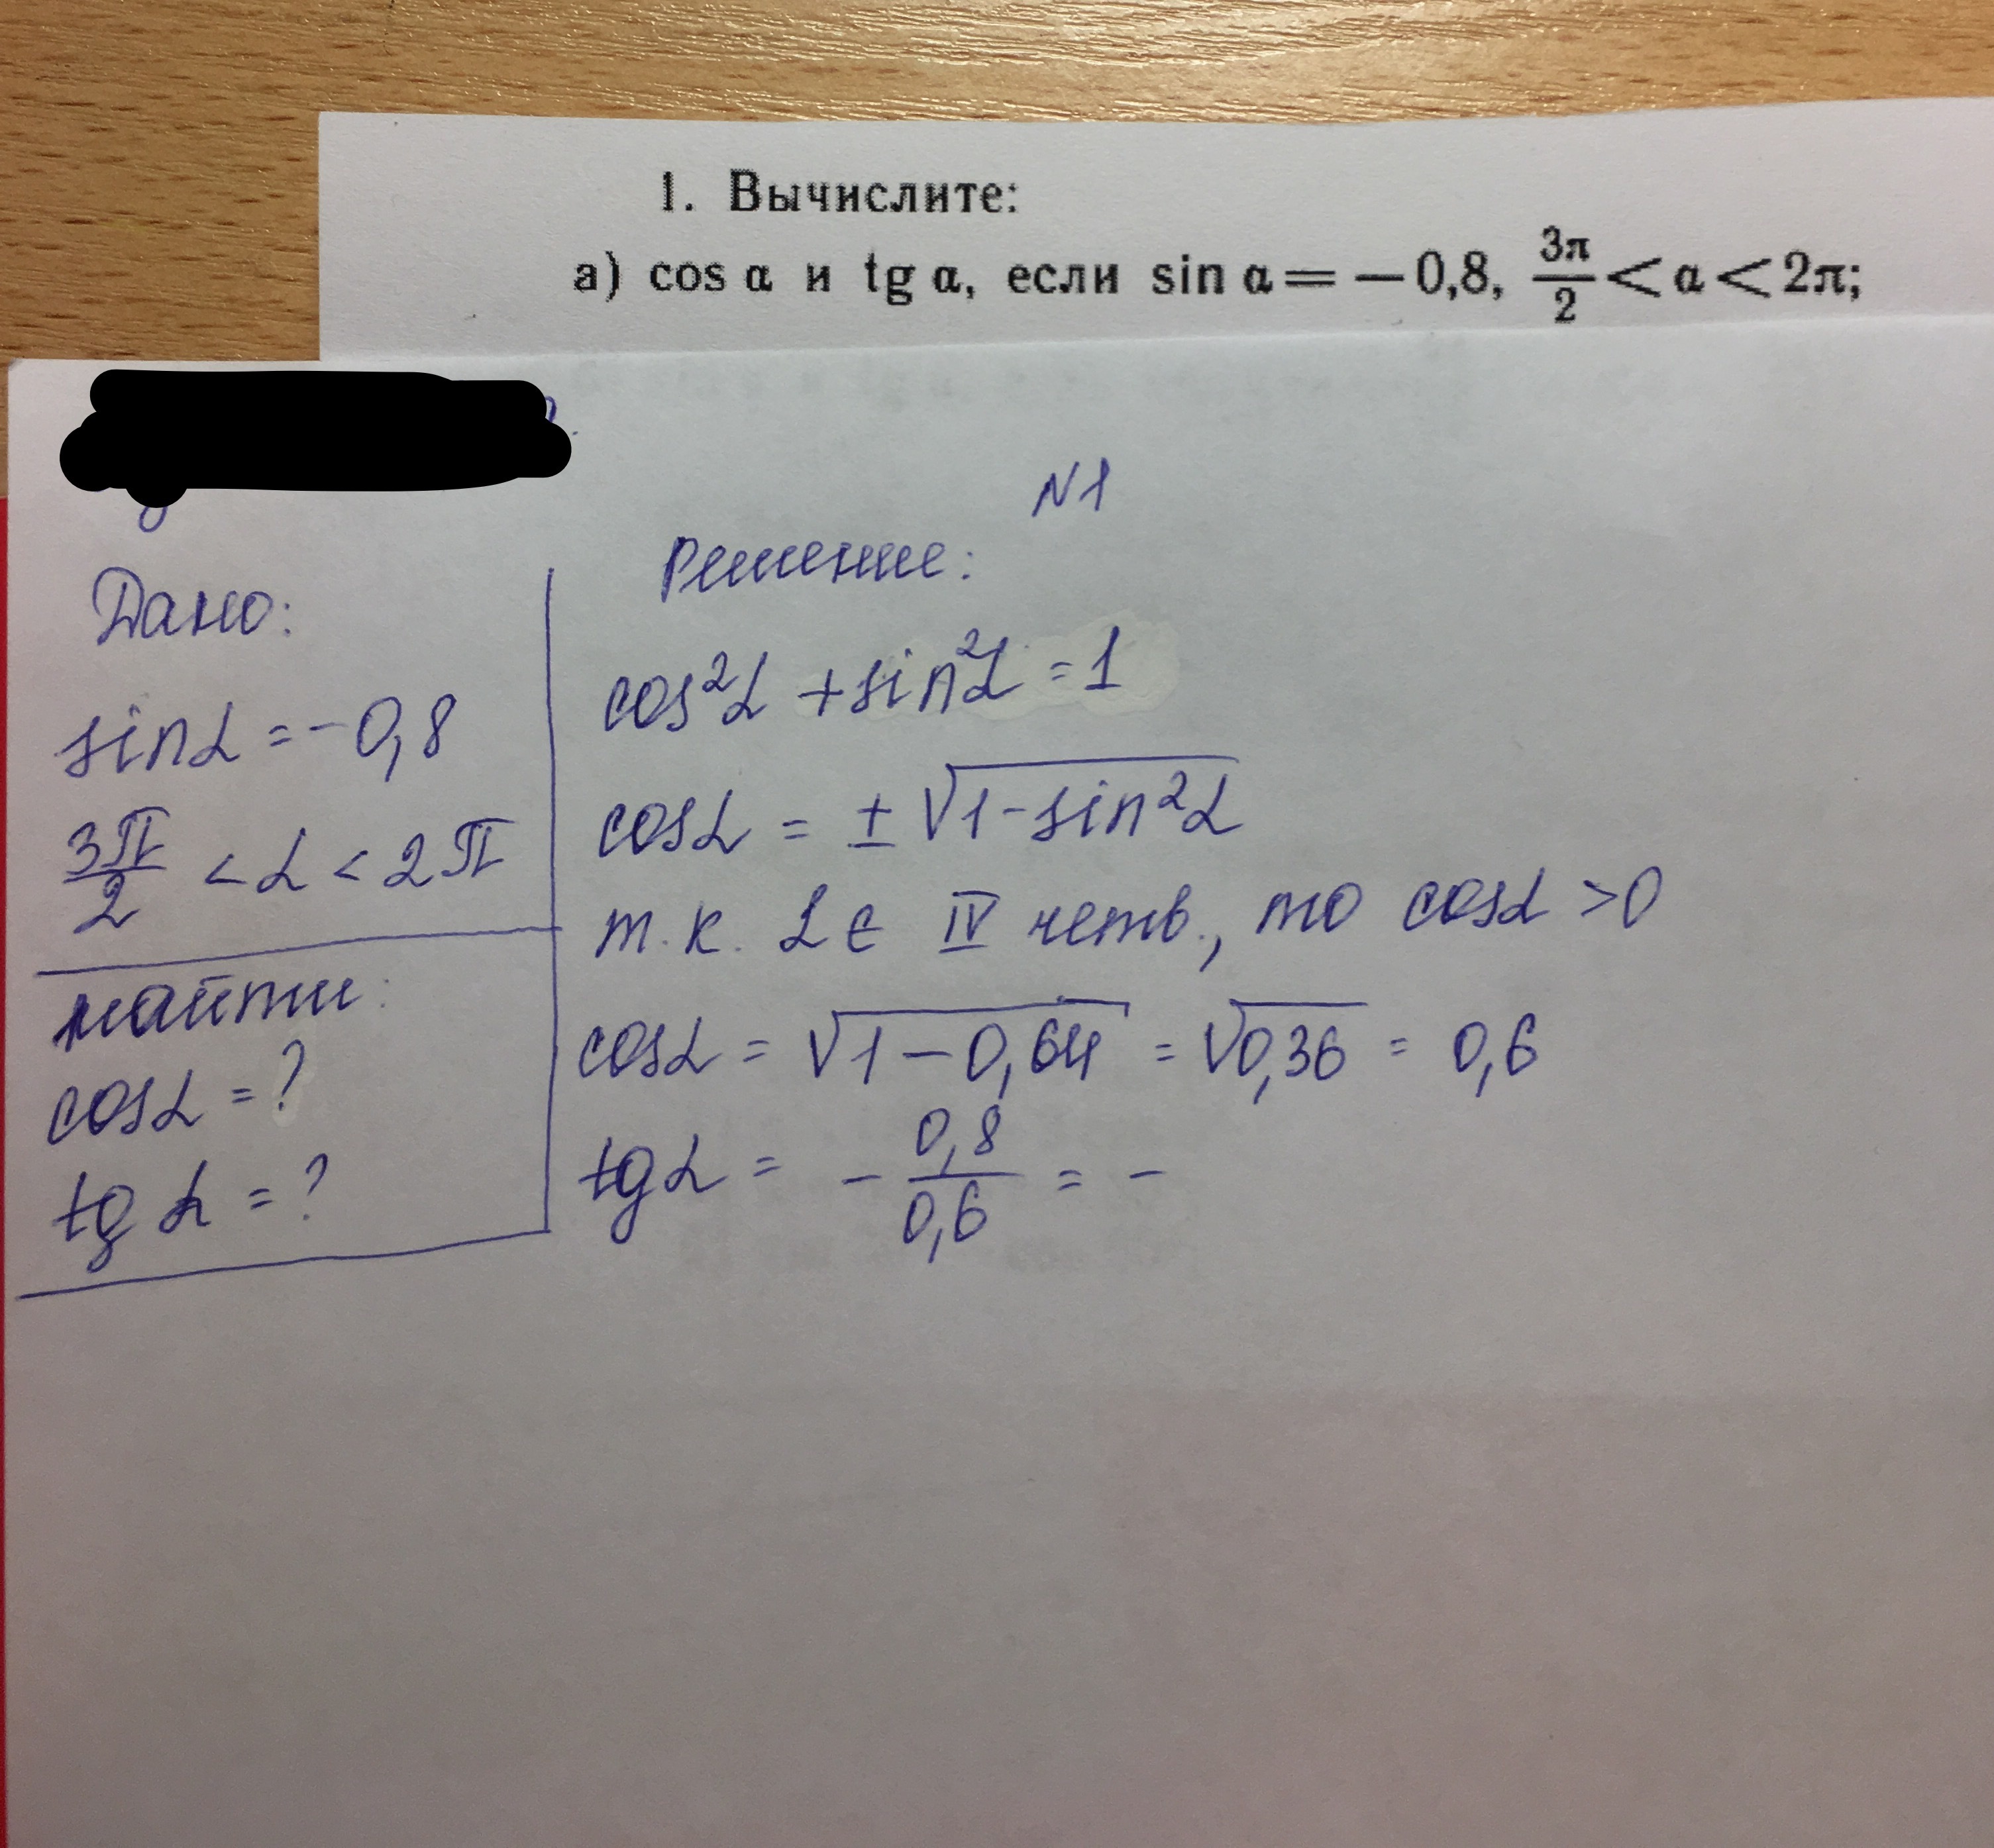 1. Вычислите:
а) cos α и tg α, если sin α = −0,8, 3π/2 < α < 2π;
N1
Дано:
sin α = -0,8
3π/2 < α < 2π
найти:
cos α = ?
tg α = ?
Решение:
cos²α + sin²α = 1
cos α = ± √(1-sin²α)
т.к. α ∈ IV четв., то cos α > 0
cos α = √(1 - 0,64) = √0,36 = 0,6
tg α = - 0,8/0,6 = -